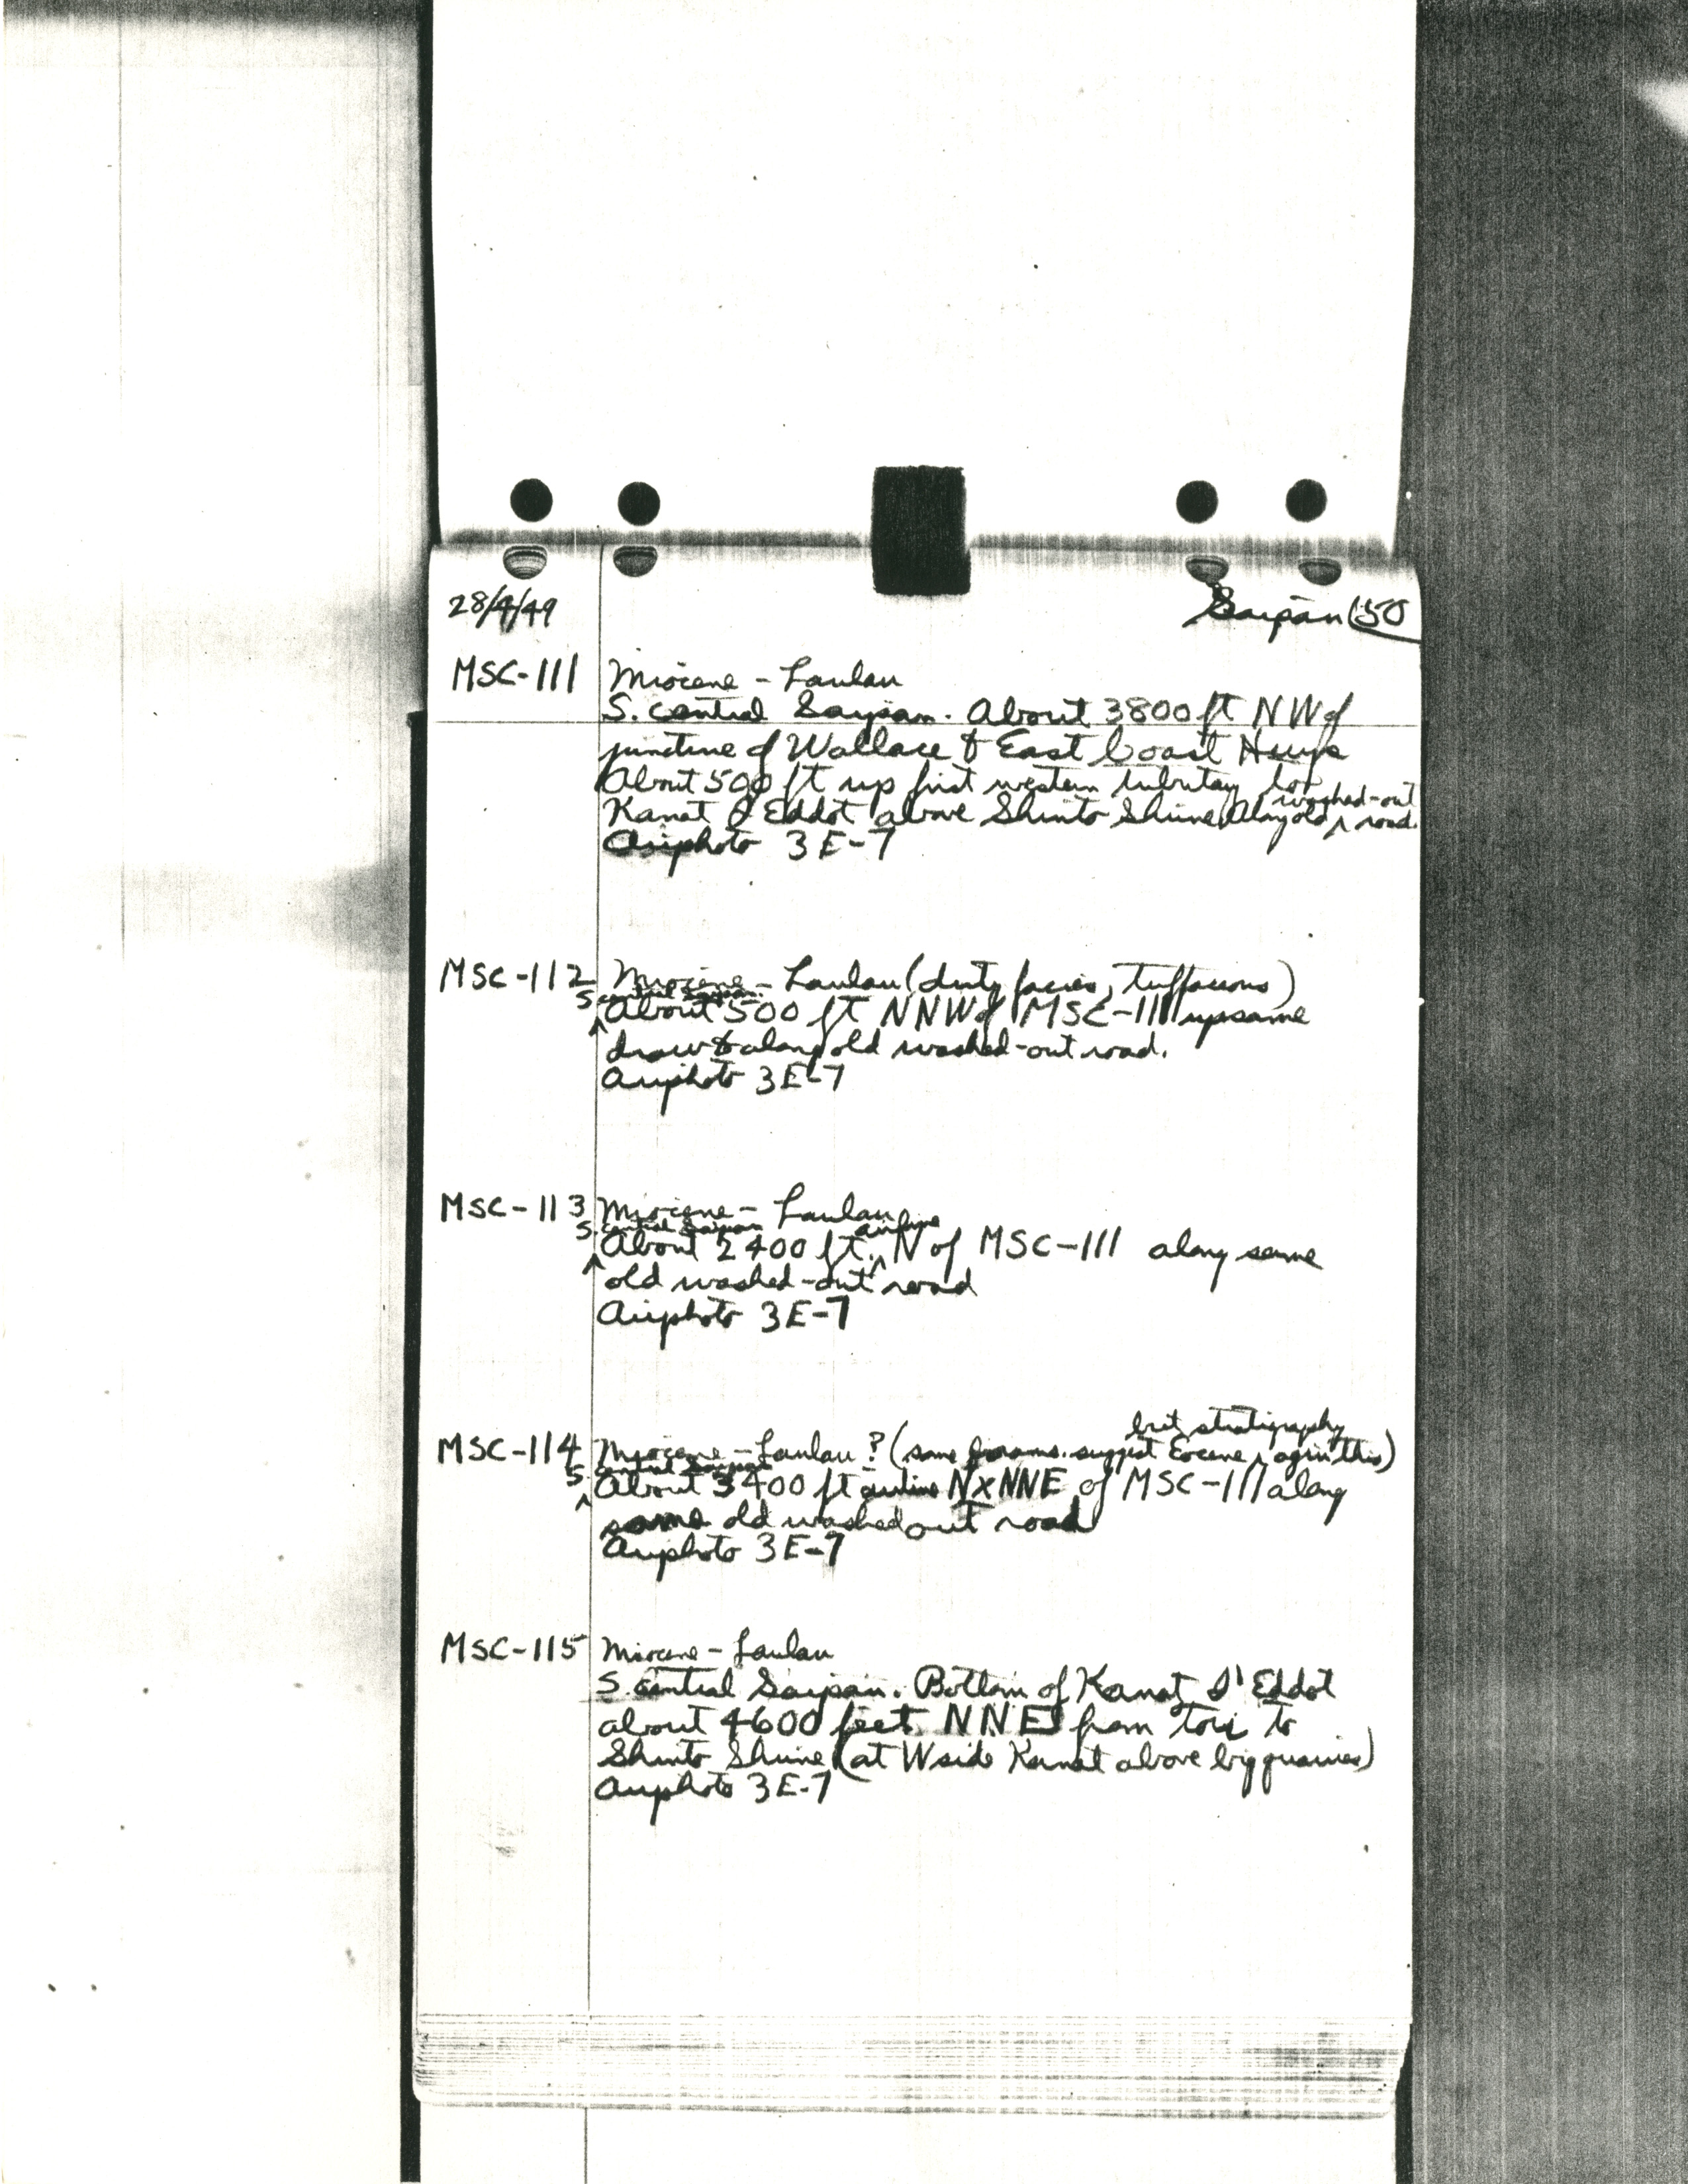 28/4/49
Saipan 150
MSC-111 Miocene - Laulau
S. central Saipan. About 3800 ft NW of
juncture of Wallace & East Coast Hwys
About 500 ft up first western tributary to
Kanat I Eddot above Shinto Shrine, Along old washed-out road.
Airphoto 3E-7
MSC-112 Miocene - Laulau (dirty facies, tuffaceous)
S. central Saipan.
About 500 ft NNW of MSC-111 up same
draw & along old washed-out road.
Airphoto 3E-7
MSC-113 Miocene - Laulau
S. central Saipan
About 2400 ft. airline N of MSC-111 along same
old washed-out road
Airphoto 3E-7
MSC-114 Miocene - Laulau ? (some forams. suggest Eocene but stratigraphy agin this)
S. central Saipan
About 3400 ft airline NxNNE of MSC-111 along
same old washed out road
Airphoto 3E-7
MSC-115 Miocene - Laulau
S. central Saipan. Bottom of Kanat I' Eddot
about 4600 feet NNE from torii to
Shinto Shrine (at W side Kanat above big quarries)
Airphoto 3E-7